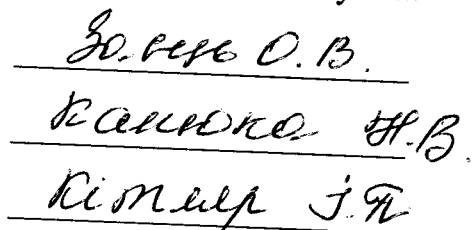 Заєць О.В.
Канюка Н.В.
Кітляр І.П